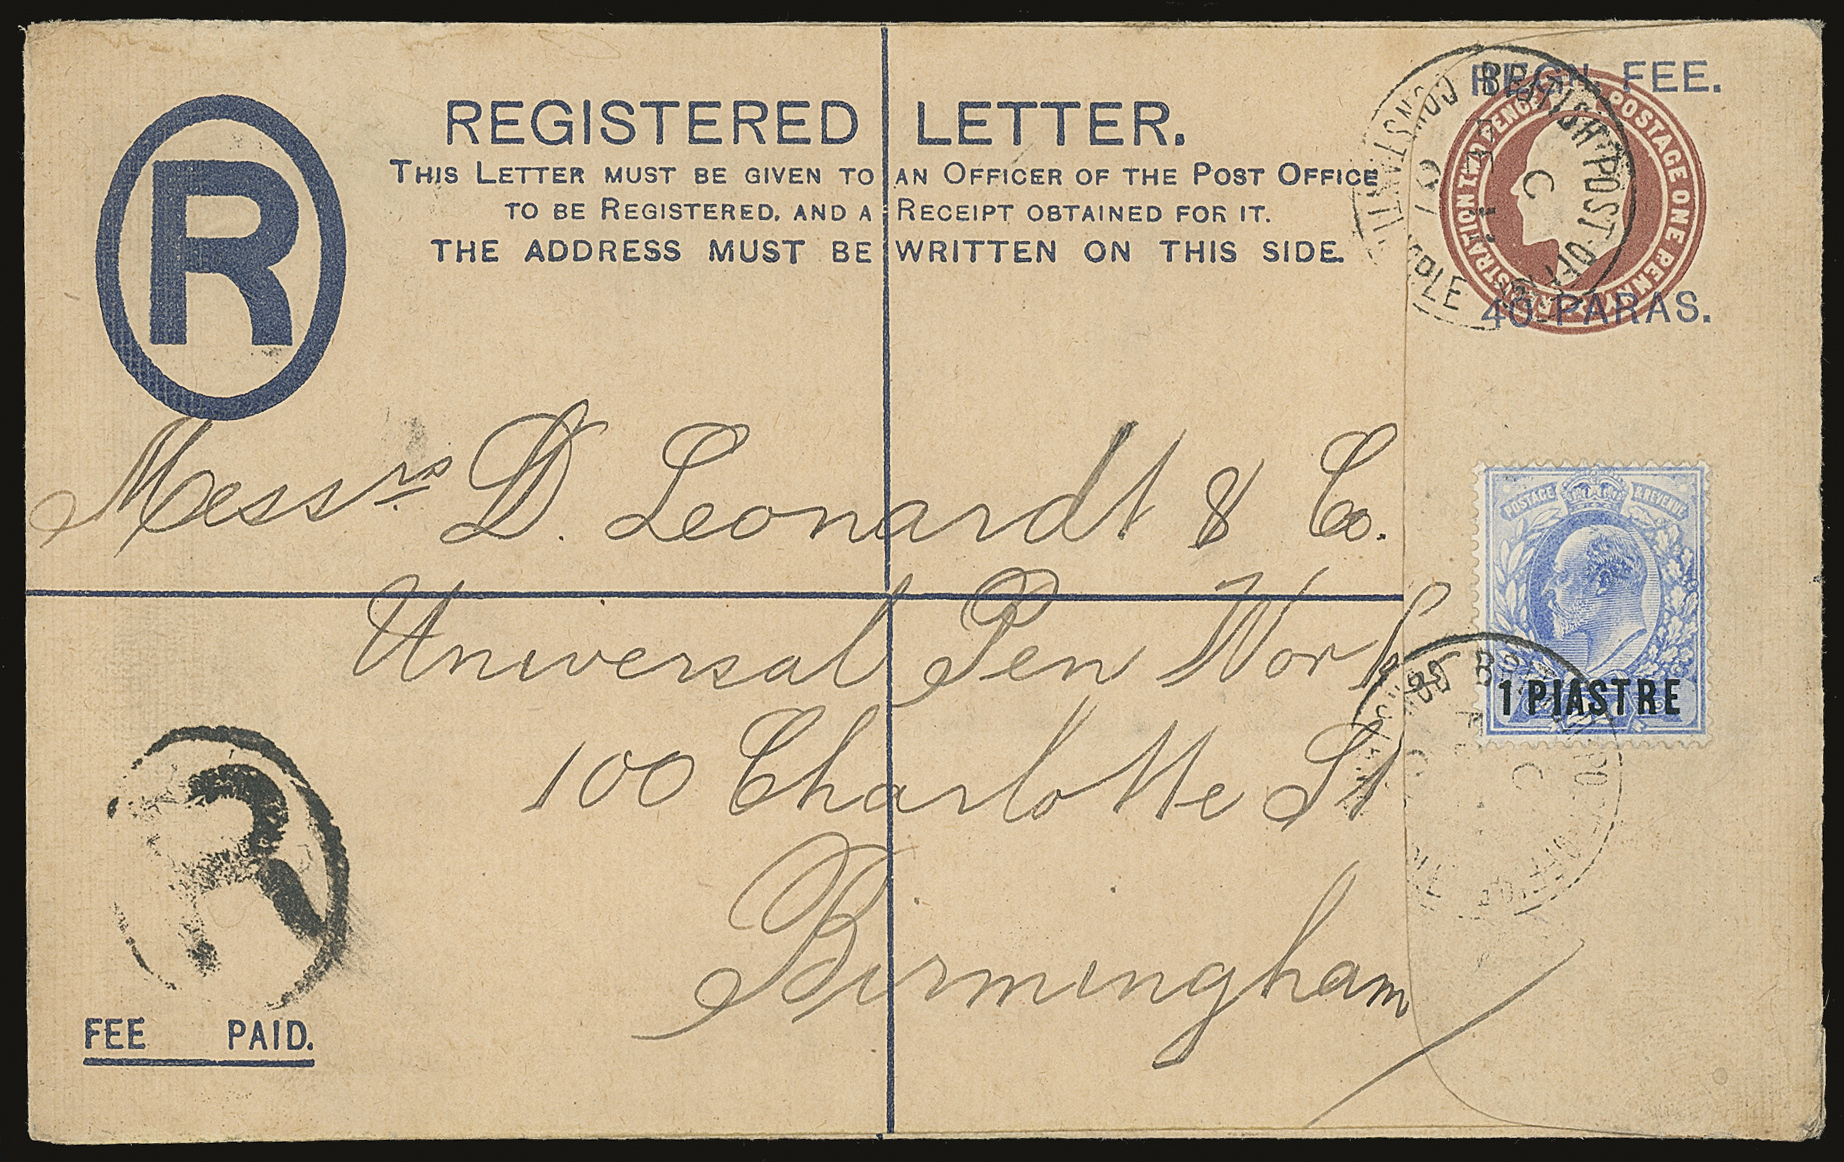 REGISTERED LETTER.
THIS LETTER MUST BE GIVEN TO AN OFFICER OF THE POST OFFICE
TO BE REGISTERED, AND A RECEIPT OBTAINED FOR IT.
THE ADDRESS MUST BE WRITTEN ON THIS SIDE.
R
REGN. FEE.
REGISTRATION TWO PENCE POSTAGE ONE PENNY
40 PARAS.
BRITISH POST OFFICE CONSTANTINOPLE
C
Messrs D. Leonardt & Co.
Universal Pen Works
100 Charlotte St
Birmingham
POSTAGE & REVENUE
1 PIASTRE
R
FEE PAID.